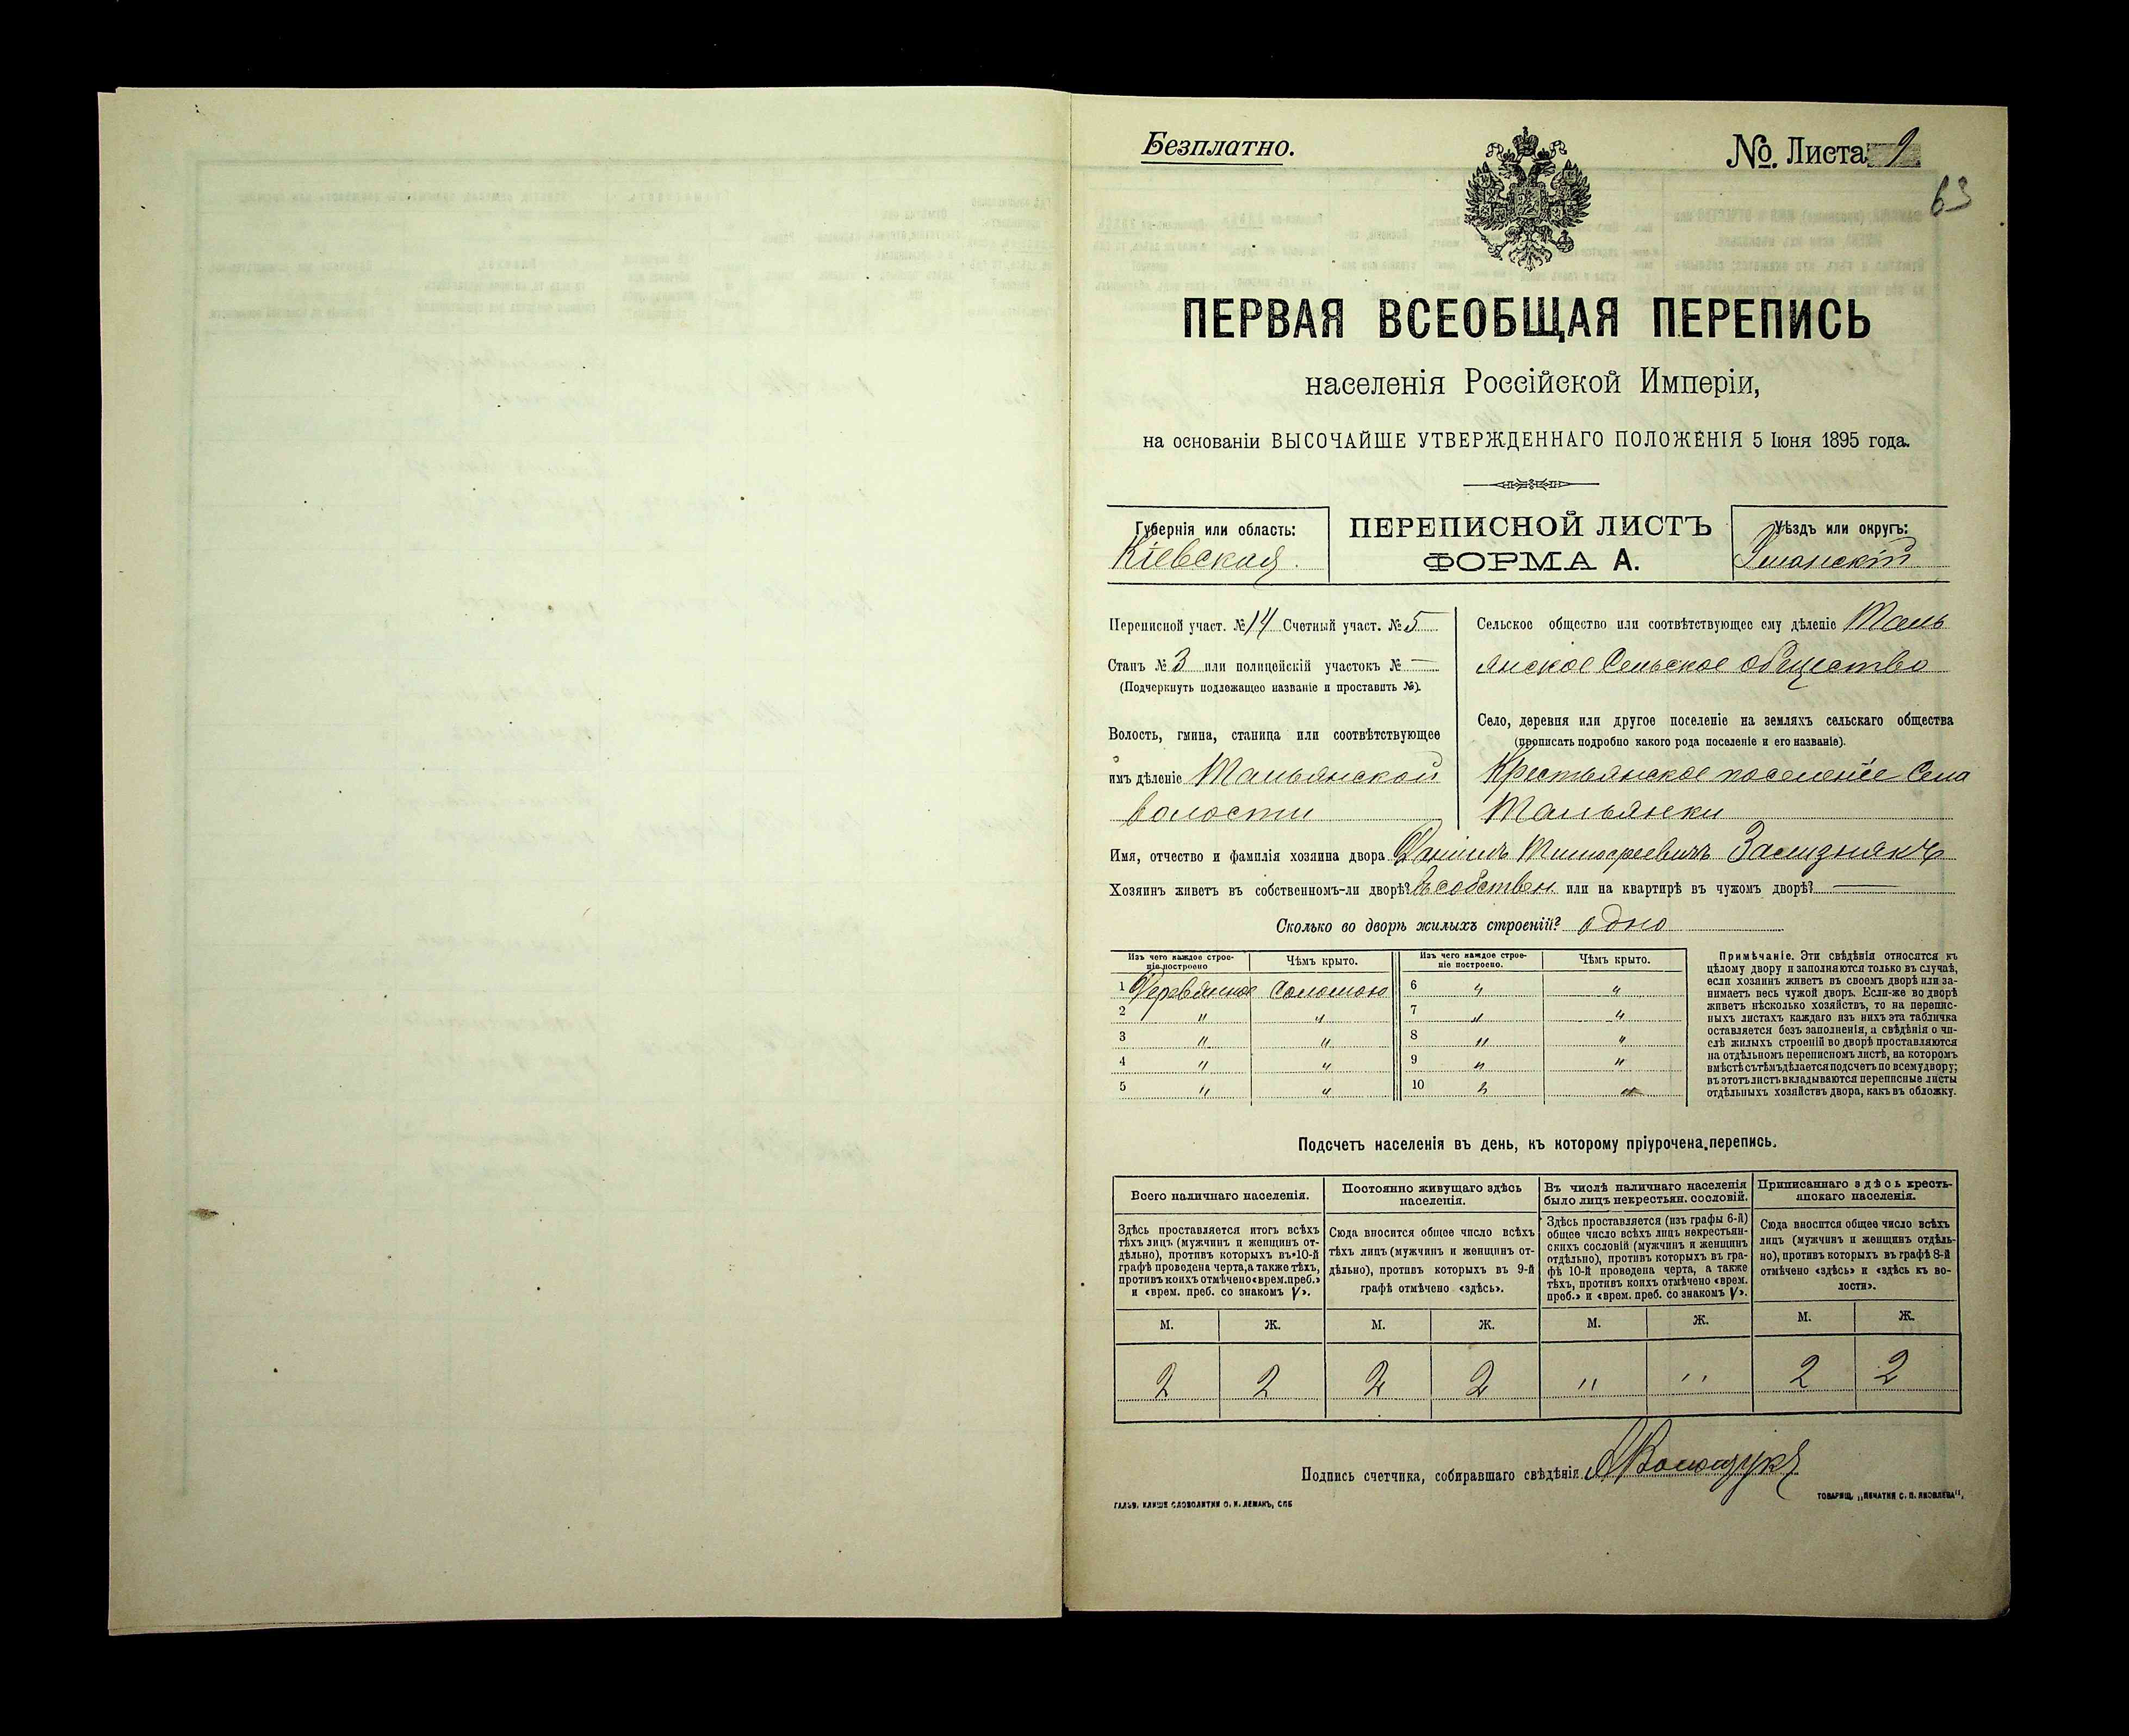 Безплатно.
№. Листа 9
63
ПЕРВАЯ ВСЕОБЩАЯ ПЕРЕПИСЬ
населенія Россійской Имперіи,
на основаніи ВЫСОЧАЙШЕ УТВЕРЖДЕННАГО ПОЛОЖЕНІЯ 5 Іюня 1895 года.
Губернія или область:
Кіевская.
ПЕРЕПИСНОЙ ЛИСТЪ
ФОРМА А.
Уѣздъ или округъ:
Уманскій
Переписной участ. № 14 Счетный участ. № 5
Станъ № 3 или полицейскій участокъ № —
(Подчеркнуть подлежащее названіе и проставить №).
Волость, гмина, станица или соотвѣтствующее
имъ дѣленіе Тальянской
волости
Сельское общество или соотвѣтствующее ему дѣленіе Таль
янское Сельское общество
Село, деревня или другое поселеніе на земляхъ сельскаго общества
(прописать подробно какого рода поселеніе и его названіе).
Крестьянское поселеніе Села
Тальянки
Имя, отчество и фамилія хозяина двора Даніилъ Тимофеевичъ Зализнякъ
Хозяинъ живетъ въ собственномъ-ли дворѣ? Въ собствен или на квартирѣ въ чужомъ дворѣ? —
Сколько во дворѣ жилыхъ строеній? одно
Изъ чего каждое строе-
ніе построено
Чѣмъ крыто.
Изъ чего каждое строе-
ніе построено.
Чѣмъ крыто.
1 Деревянное Соломою 6 " "
2 " " 7 " "
3 " " 8 " "
4 " " 9 " "
5 " " 10 " "
Примѣчаніе. Эти свѣдѣнія относятся къ
цѣлому двору и заполняются только въ случаѣ,
если хозяинъ живетъ въ своемъ дворѣ или за-
нимаетъ весь чужой дворъ. Если-же во дворѣ
живетъ нѣсколько хозяйствъ, то на перепис-
ныхъ листахъ каждаго изъ нихъ эта табличка
оставляется безъ заполненія, а свѣдѣнія о чи-
слѣ жилыхъ строеній во дворѣ проставляются
на отдѣльномъ переписномъ листѣ, на которомъ
вмѣстѣ съ тѣмъ дѣлается подсчетъ по всему двору;
въ этотъ листъ вкладываются переписные листы
отдѣльныхъ хозяйствъ двора, какъ въ обложку.
Подсчетъ населенія въ день, къ которому пріурочена перепись.
Всего наличнаго населенія.
Здѣсь проставляется итогъ всѣхъ
тѣхъ лицъ (мужчинъ и женщинъ от-
дѣльно), противъ которыхъ въ 10-й
графѣ проведена черта, а также тѣхъ,
противъ коихъ отмѣчено «врем. преб.»
и «врем. преб. со знакомъ V».
Постоянно живущаго здѣсь
населенія.
Сюда вносится общее число всѣхъ
тѣхъ лицъ (мужчинъ и женщинъ от-
дѣльно), противъ которыхъ въ 9-й
графѣ отмѣчено «здѣсь».
Въ числѣ наличнаго населенія
было лицъ некрестьян. сословій.
Здѣсь проставляется (изъ графы 6-й)
общее число всѣхъ лицъ некрестьян-
скихъ сословій (мужчинъ и женщинъ
отдѣльно), противъ которыхъ въ гра-
фѣ 10-й проведена черта, а также
тѣхъ, противъ коихъ отмѣчено «врем.
преб.» и «врем. преб. со знакомъ V».
Приписаннаго здѣсь кресть-
янскаго населенія.
Сюда вносится общее число всѣхъ
лицъ (мужчинъ и женщинъ отдѣль-
но), противъ которыхъ въ графѣ 8-й
отмѣчено «здѣсь» и «здѣсь къ во-
лости».
М. Ж. М. Ж. М. Ж. М. Ж.
2 2 2 2 " " 2 2
Подпись счетчика, собиравшаго свѣдѣнія
ГАЛЬВ. КЛИШЕ СЛОВОЛИТНИ О. И. ЛЕМАНЪ, СПБ
ТОВАРИЩ. „ПЕЧАТНЯ С. П. ЯКОВЛЕВА".